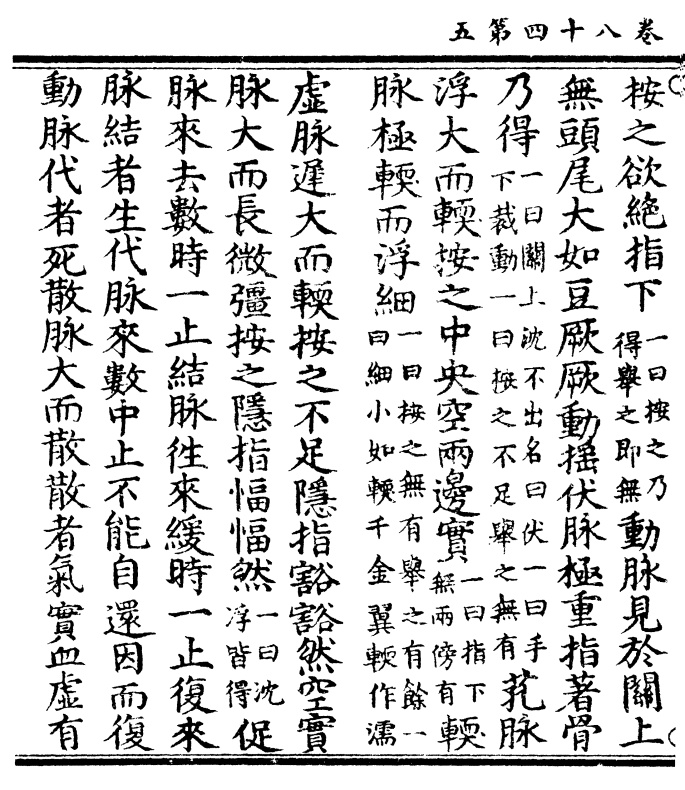 卷八十四第五
按之欲絶指下一曰按之乃得舉之即無動脉見於關上
無頭尾大如豆厥厥動揺伏脉極重指著骨
乃得一曰關上沈不出名曰伏一曰手下裁動一曰按之不足舉之無有芤脉
浮大而輭按之中央空兩邊實一曰指下無兩傍有輭
脉極輭而浮細一曰按之無有舉之有餘一曰細小如輭千金翼輭作濡
虛脉遲大而輭按之不足隱指豁豁然空實
脉大而長微彊按之隱指愊愊然一曰沈浮皆得促
脉來去數時一止結脉徃來緩時一止復來
脉結者生代脉來數中止不能自還因而復
動脉代者死散脉大而散散者氣實血虛有